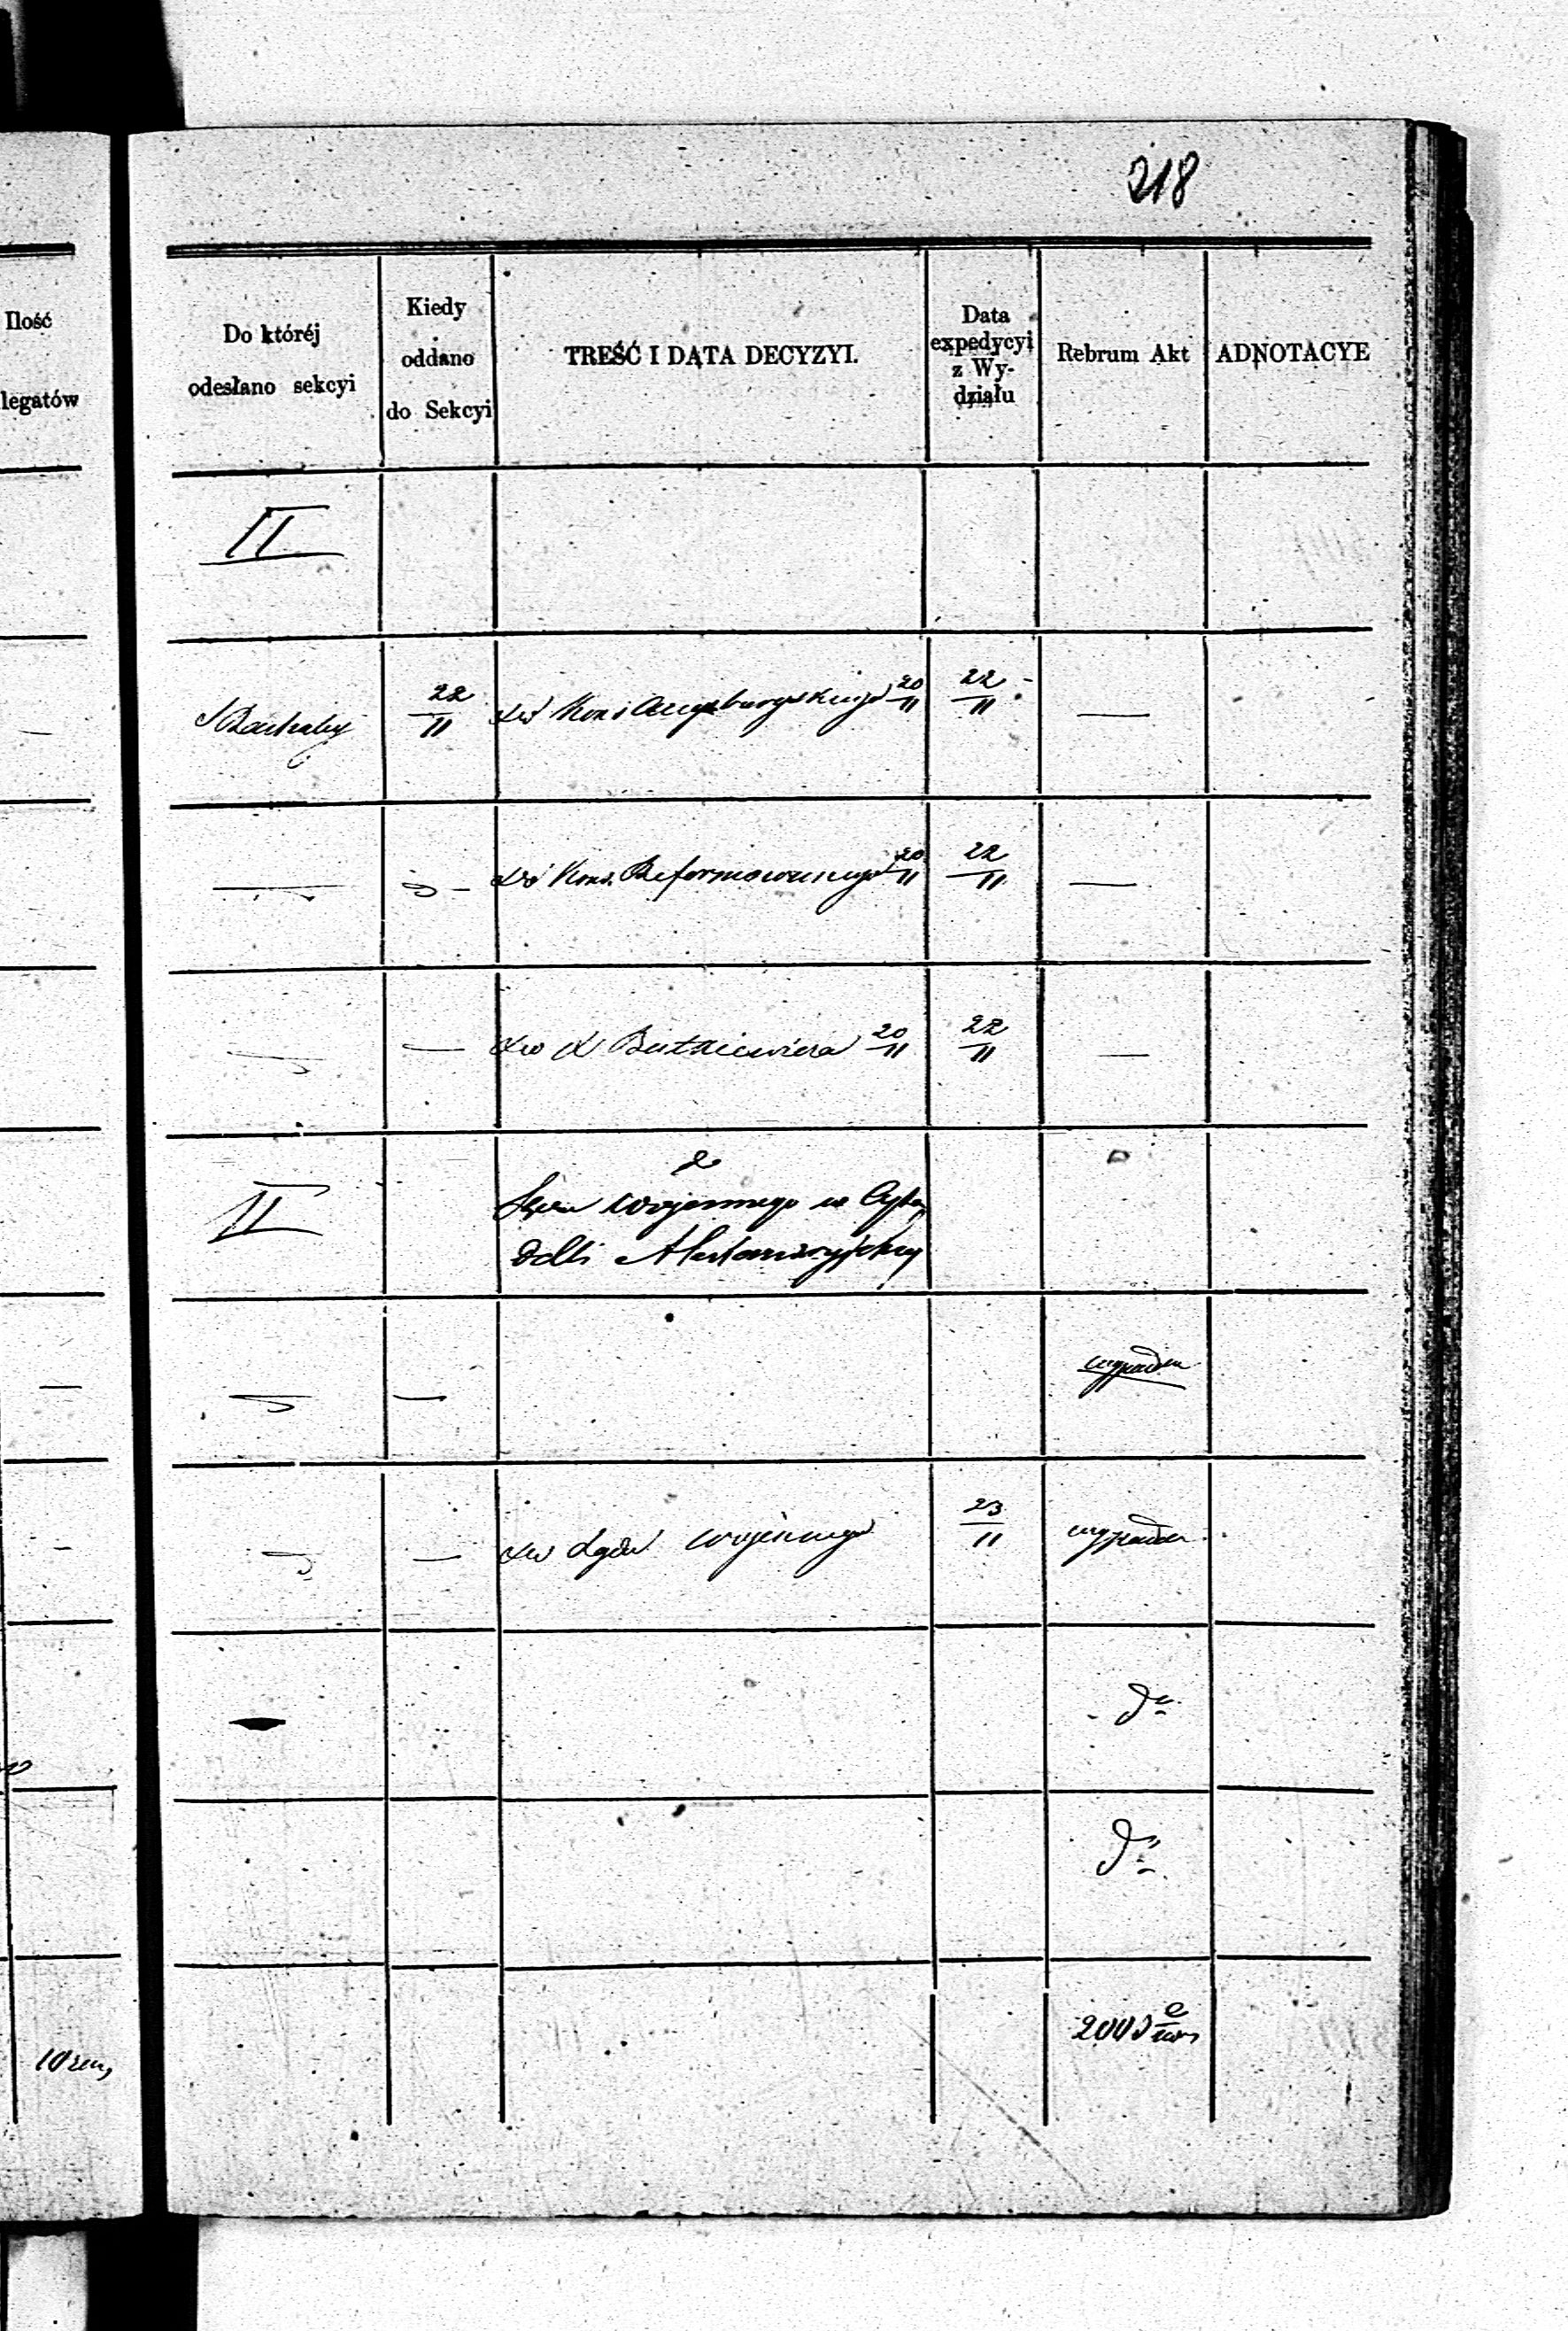 218
Ilość
legatów
Do któréj
odesłano sekcyi
Kiedy
oddano
do Sekcyi
TREŚĆ I DATA DECYZYI.
Data
expedycyi
z Wy-
działu
Rebrum Akt
ADNOTACYE
II
22/11
do Kons Augsburgskiego 20/11
22/11
—
do Kons. Reformowanego 20/11
22/11
—
—
do X Butkiewicza 20/11
22/11
—
II
do
Sądu wojennego w Cyta
delli Alexandryjskiej
—
—
do Sądu wojennego
23/11
200
10